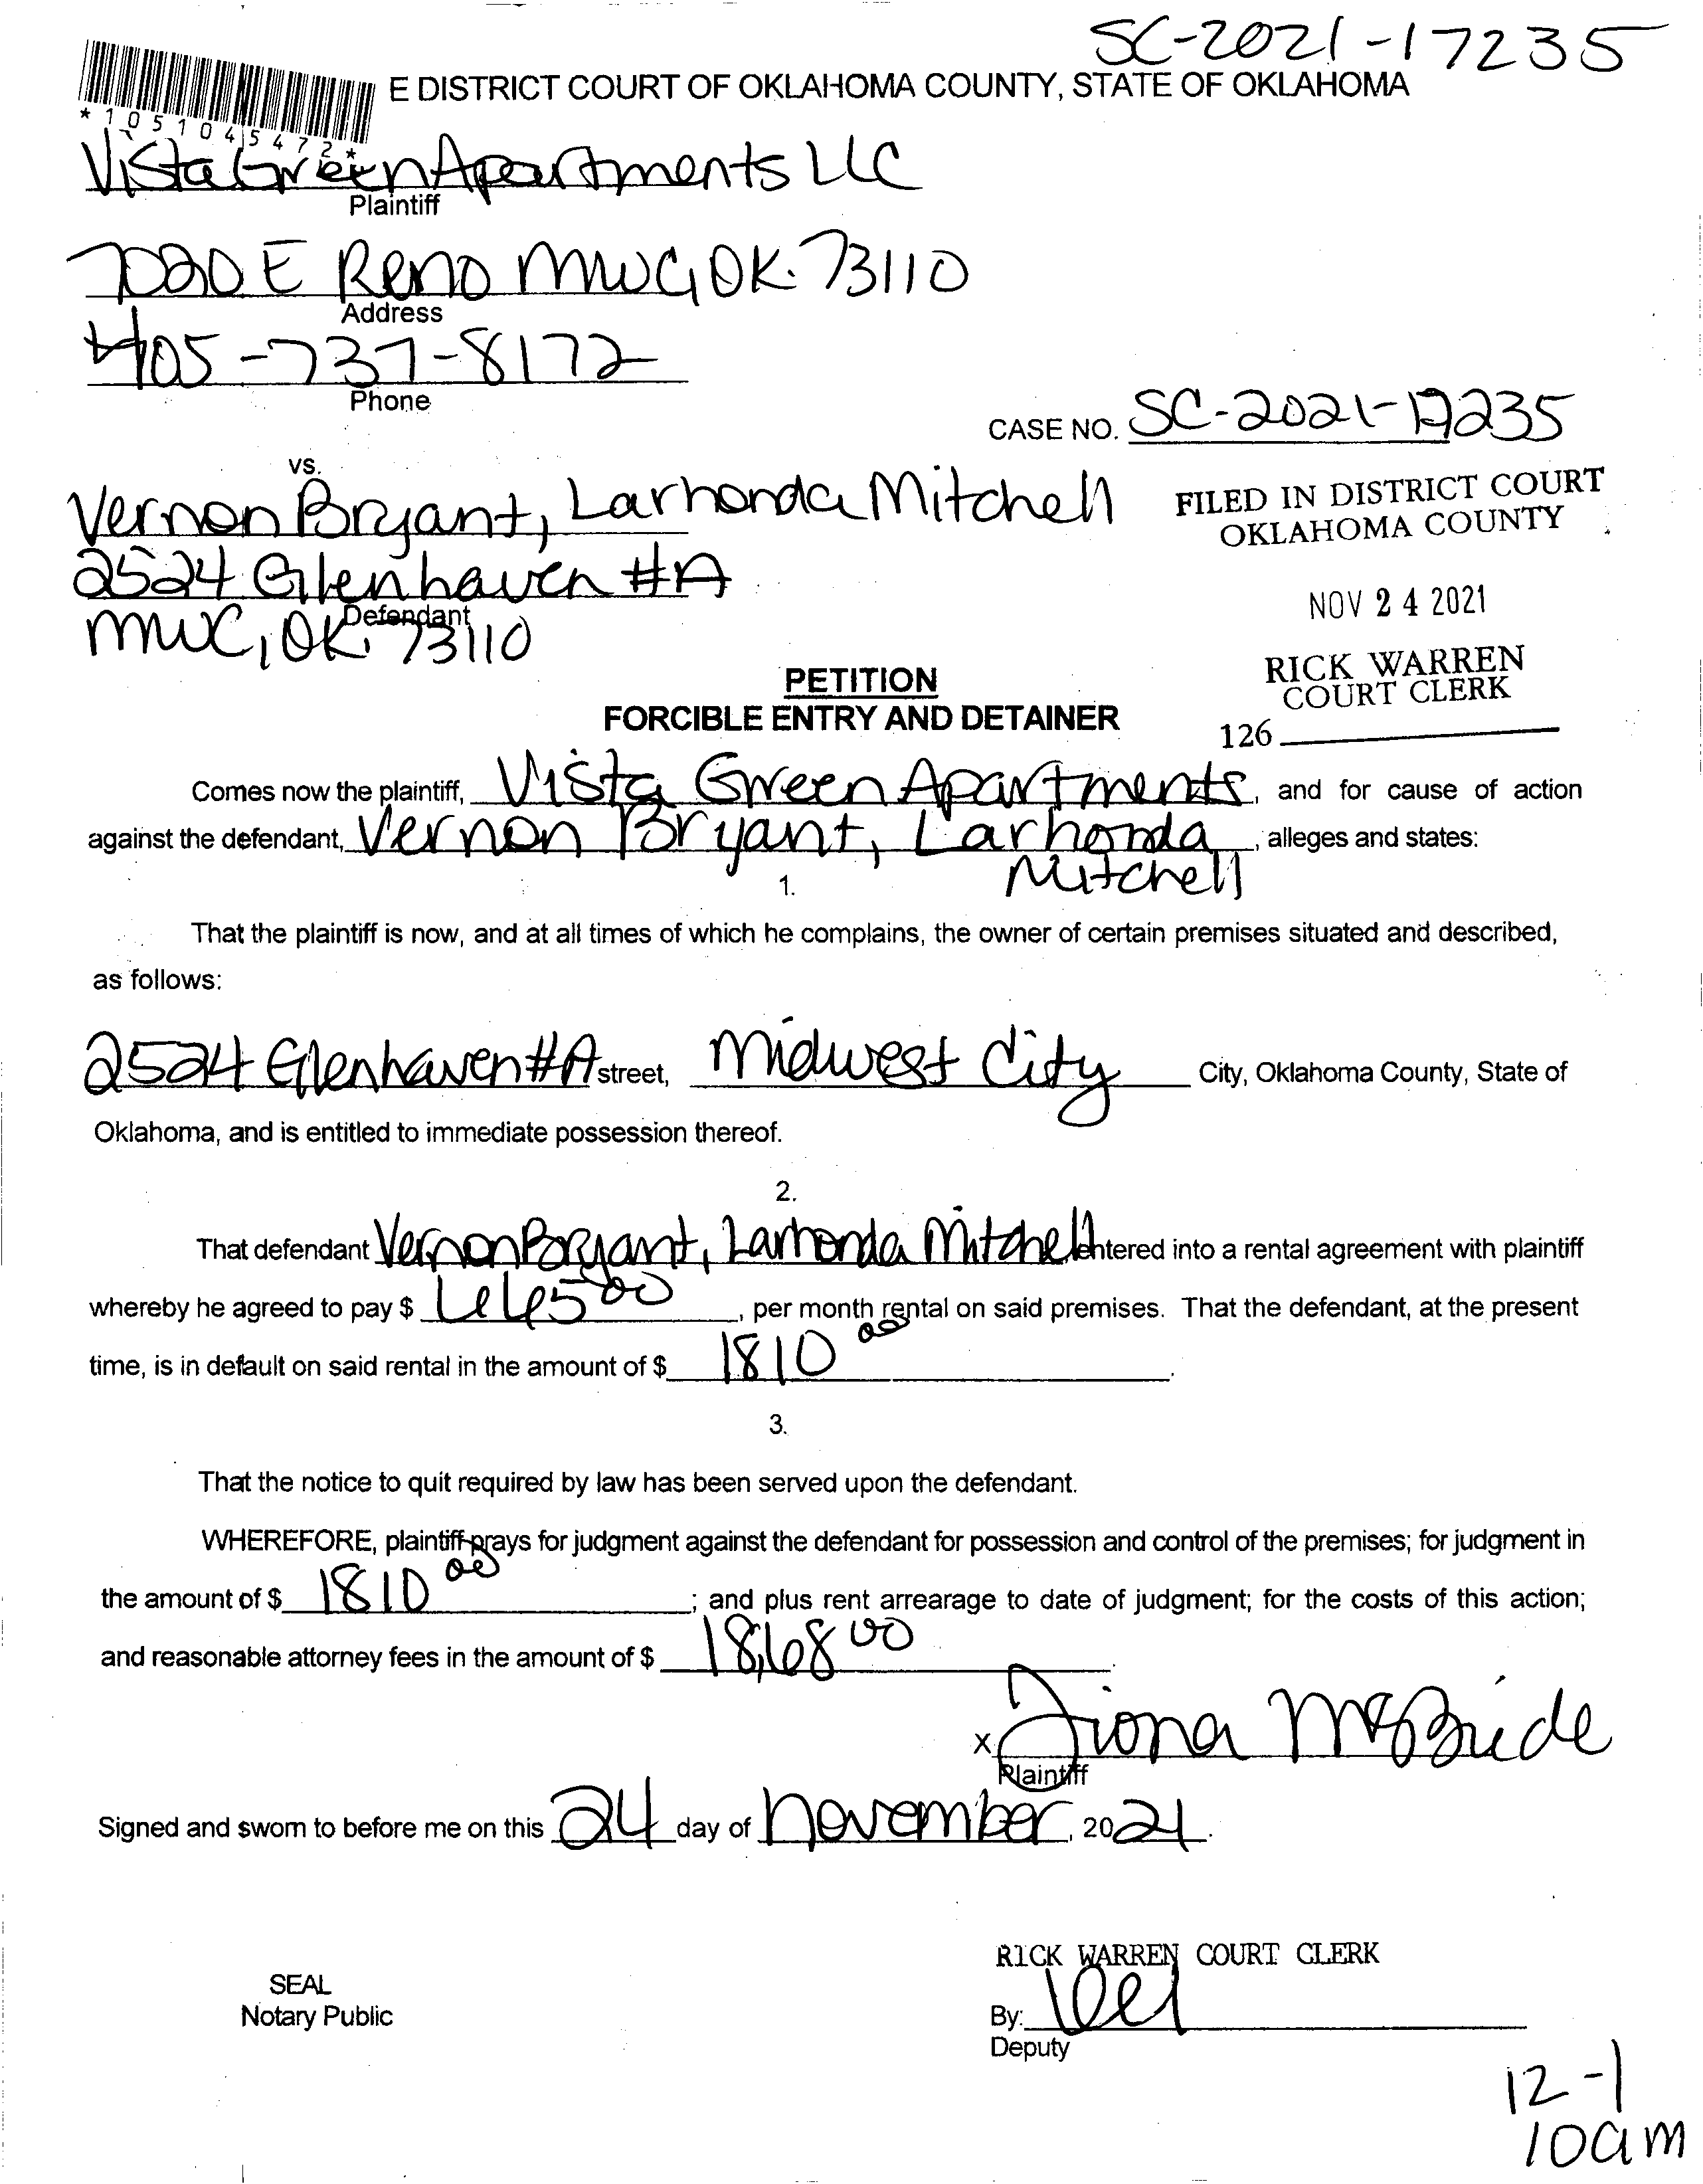 SC-2021-17235
E DISTRICT COURT OF OKLAHOMA COUNTY, STATE OF OKLAHOMA
*1051045472*
Vista Green Apartments LLC
Plaintiff
7020 E Reno MWC, OK. 73110
Address
405-737-8172
Phone
CASE NO. SC-2021-17235
vs.
Vernon Bryant, Larhonda Mitchell
FILED IN DISTRICT COURT
OKLAHOMA COUNTY
2524 Glenhaven #A
Defendant
MWC, OK. 73110
NOV 24 2021
RICK WARREN
COURT CLERK
126
PETITION
FORCIBLE ENTRY AND DETAINER
Comes now the plaintiff, Vista Green Apartments, and for cause of action
against the defendant, Vernon Bryant, Larhonda Mitchell, alleges and states:
1.
That the plaintiff is now, and at all times of which he complains, the owner of certain premises situated and described,
as follows:
2524 Glenhaven #A street, Midwest City City, Oklahoma County, State of
Oklahoma, and is entitled to immediate possession thereof.
2.
That defendant Vernon Bryant, Larhonda Mitchell entered into a rental agreement with plaintiff
whereby he agreed to pay $ 665 00, per month rental on said premises. That the defendant, at the present
time, is in default on said rental in the amount of $ 1810 00.
3.
That the notice to quit required by law has been served upon the defendant.
WHEREFORE, plaintiff prays for judgment against the defendant for possession and control of the premises; for judgment in
the amount of $ 1810 00; and plus rent arrearage to date of judgment; for the costs of this action;
and reasonable attorney fees in the amount of $ 00.
x Fiona McBride
Plaintiff
Signed and sworn to before me on this 24 day of November, 2021.
RICK WARREN COURT CLERK
SEAL
Notary Public
By:
Deputy
12-1
10am